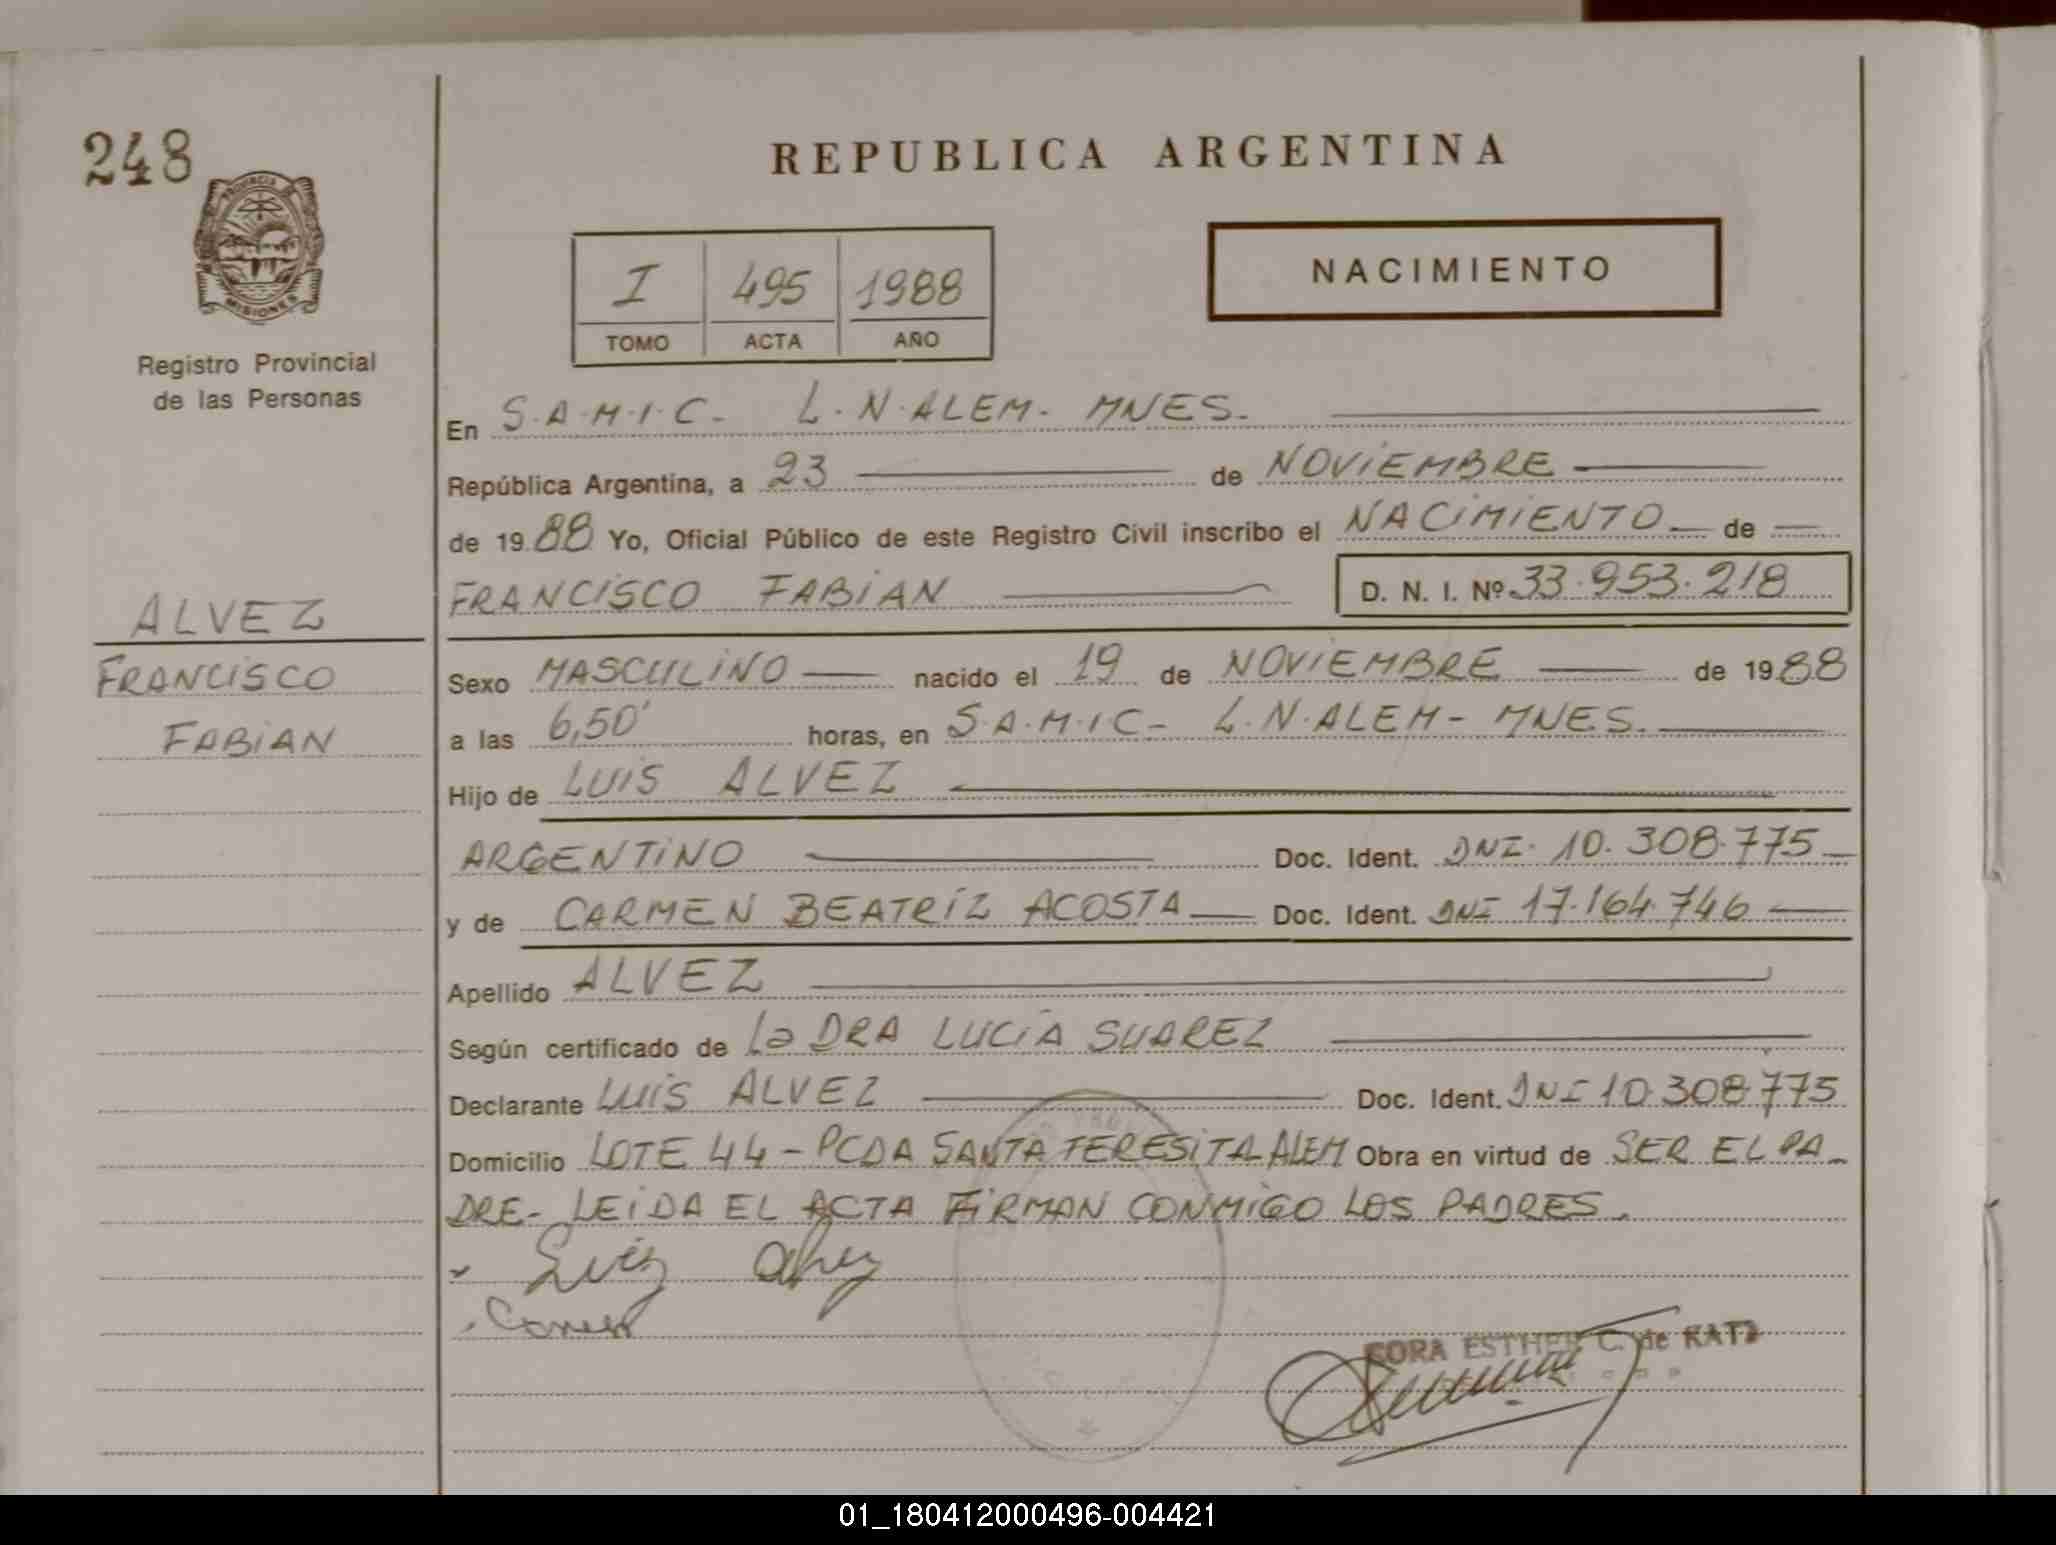 248
PROVINCIA
MISIONES
Registro Provincial
de las Personas
ALVEZ
FRANCISCO
FABIAN
REPUBLICA ARGENTINA
I 495 1988
TOMO ACTA AÑO
NACIMIENTO
En S.A.M.I.C- L.N.ALEM- MNES.
República Argentina, a 23 de NOVIEMBRE
de 1988 Yo, Oficial Público de este Registro Civil inscribo el NACIMIENTO de
FRANCISCO FABIAN D. N. I. Nº 33.953.218
Sexo MASCULINO nacido el 19 de NOVIEMBRE de 1988
a las 6,50' horas, en S.A.M.I.C- L.N.ALEM- MNES.
Hijo de LUIS ALVEZ
ARGENTINO Doc. Ident. DNI. 10.308.775
y de CARMEN BEATRIZ ACOSTA Doc. Ident. DNI 17.164.746
Apellido ALVEZ
Según certificado de La DRA LUCIA SUAREZ
Declarante LUIS ALVEZ Doc. Ident. DNI 10.308.775
Domicilio LOTE 44 - PCDA SANTA TERESITA-ALEM Obra en virtud de SER EL PA-
DRE- LEIDA EL ACTA FIRMAN CONMIGO LOS PADRES.
Luis Alvez
Carmen
CORA ESTHER C. de KATZ
01_180412000496-004421